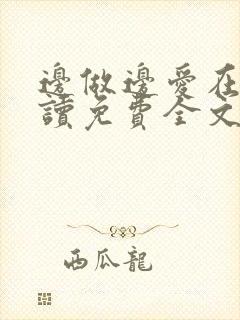 邊做邊愛在
讀免費全文
西瓜龍